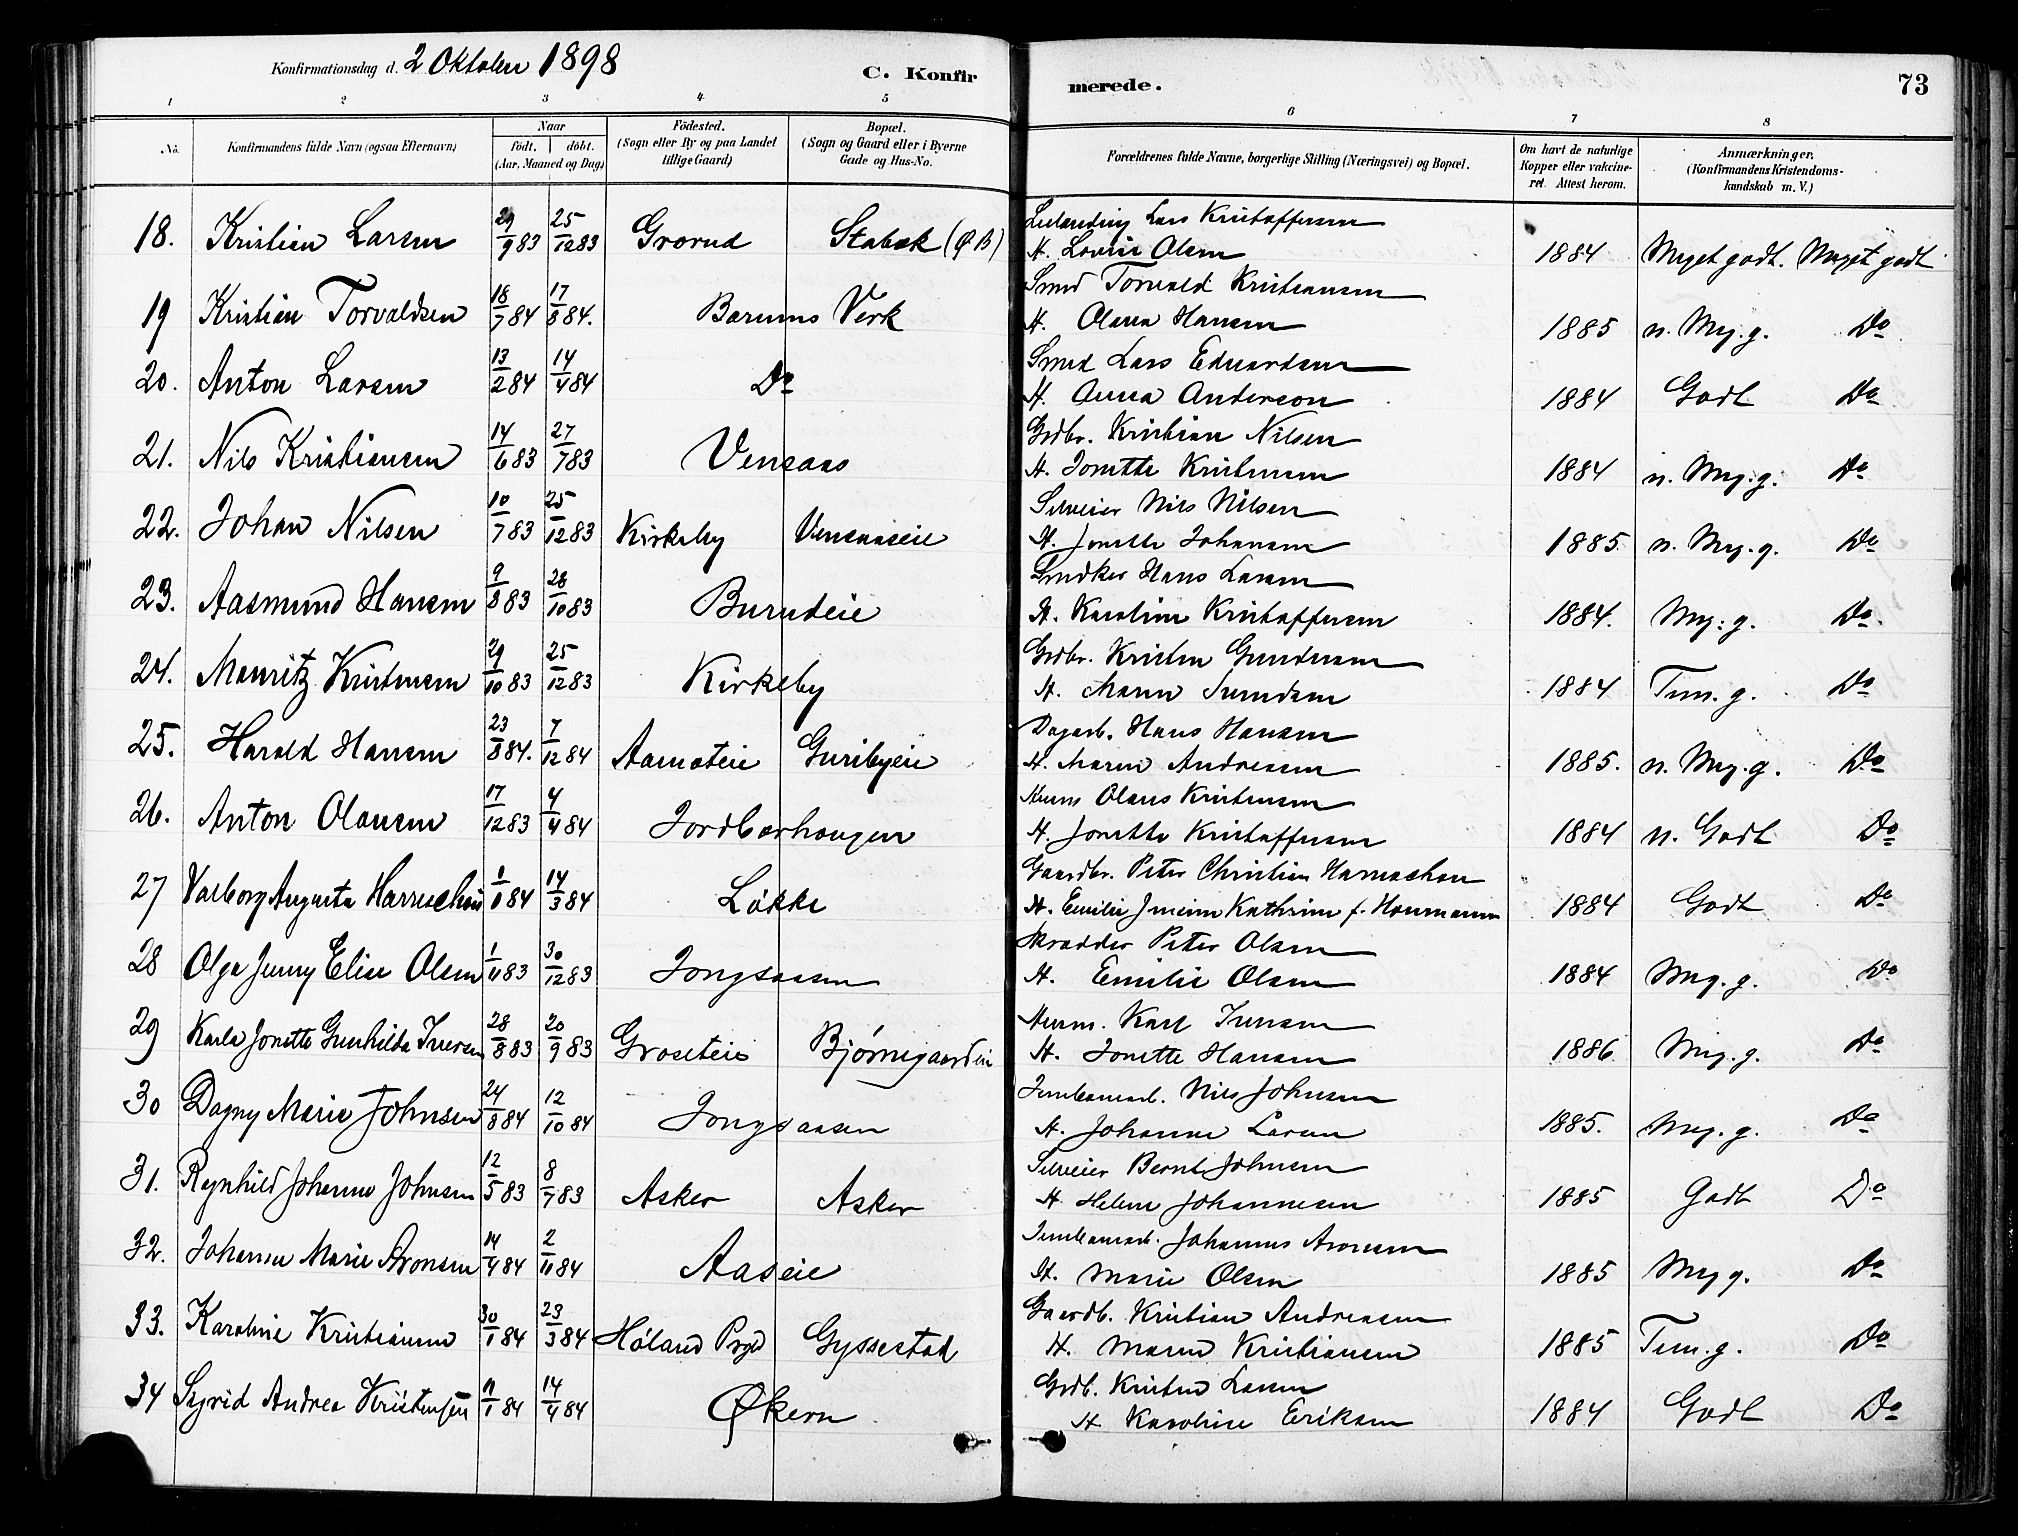 Konfirmationsdag d. 2 Oktober 1898
C. Konfir
merede.
73
1 2 3 4 5 6 7 8
No.
Konfirmandens fulde Navn (ogsaa Efternavn)
Naar
født. døbt.
(Aar, Maaned og Dag)
Fødested.
(Sogn eller By og paa Landet
tillige Gaard)
Bopæl.
(Sogn og Gaard eller i Byerne
Gade og Hus-No.
Forældrenes fulde Navne, borgerlige Stilling (Næringsvei) og Bopæl.
Om havt de naturlige
Kopper eller vakcine-
ret. Attest herom.
Anmærkninger.
(Konfirmandens Kristendoms-
kundskab m. V.)
18. Kristian Larsen 29/9 83 25/12 83 Grorud Stabæk (ØB) Lars Kristoffersen
H. Lovise Olsen 1884 Meget godt. Meget godt
19 Kristian Torvaldsen 18/7 84 17/8 84. Bærums Verk Smed Torvald Kristiansen
H. Olava Hansen 1885 n. Mg. g. Do
20. Anton Larsen 13/2 84 14/4 84 Do Smed Lars Edvardsen
H. Anna Anderson 1884 Godt Do
21. Nils Kristiansen 14/6 83 27/7 83 Vensaas Grdbr. Kristian Nilsen
H. Jonette Kristensen 1884 n. Mg. g. Do
22. Johan Nilsen 10/7 83 25/12 83 Kirkeby Vensaaseie Selveier Nils Nilsen
H. Jonette Johansen 1885 n. Mg. g. Do
23. Aasmund Hansen 9/8 83 28/10 83 Burudeie Snedker Hans Larsen
H. Karoline Kristoffersen 1884. Mg. g. Do.
24. Mauritz Kristensen 29/10 83 25/12 83 Kirkeby Grdbr. Kristen Gundersen
H. Maren 1884 Tem. g. Do
25. Harald Hansen 23/8 84. 7/12 84 Aamoteie Guribyeie Dagarb. Hans Hansen
H. Maren Andreasen 1885. n. Mg. g. Do
26. Anton Olausen 17/12 83 4/4 84 Jordbærhaugen Murm Olaus Kristensen
H. Jonette Kristoffersen 1884 n. Godt Do
27 Valborg Augusta Harreschou 14/3 84 Løkke Gaardbr. Peter Christian Harreschou
H. Emilie Kathrine f. 1884 Godt Do
28 Olga Jenny Elise Olsen 1/11 83 30/12 83 Jongsaasen Skrædder Peter Olsen
H. Emilie Olsen 1884 Mg. g. Do
29 Karla Jonette Gunhilda Iversen 28/8 83 20/9 83 Groseteie Bjørnegaardeie Murm. Karl Iversen
H. Jonette Hansen 1886 Mg. g. Do
30 Dagny Marie Johnsen 24/8 84 12/10 84 Jongsaasen Jernbanearb. Nils Johnsen
H. Johanne Larsen 1885. Mg. g. Do
31. Ragnhild Johanne Johnsen 12/5 83 8/7 83 Asker Asker Selveier Bernt Johnsen
H. Helene Johannesen 1885 Godt Do
32. Johanne Marie Aronsen 14/4 84 2/11 84 Aaseie Jernbanearb. Johannes Aronsen
H. Marie Olsen 1885 Mg g. Do
33. Karoline Kristiansen 30/1 84 23/3 84 Høland Prgld Gyssestad Gaardb. Kristian Andreasen
H. Maren Kristiansen 1885 Tem. g. Do
34 Sigrid Andrea Kristensen 11/1 84 14/4 84 Økern Grdb. Kristen Larsen
H Karoline Eriksen 1884 Godt Do